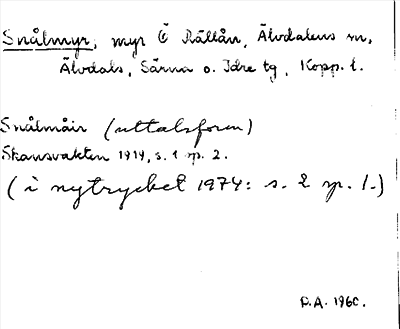 Snålmyr, myr Ö Rällån, Älvdalens sn,
Älvdals, Särna o. Idre tg, Kopp. l.
Snålmåir (uttalsform)
Skansvakten 1919, s. 1 sp. 2.
(i nytrycket 1974: s. 2 sp. 1.)
D.A. 1960.